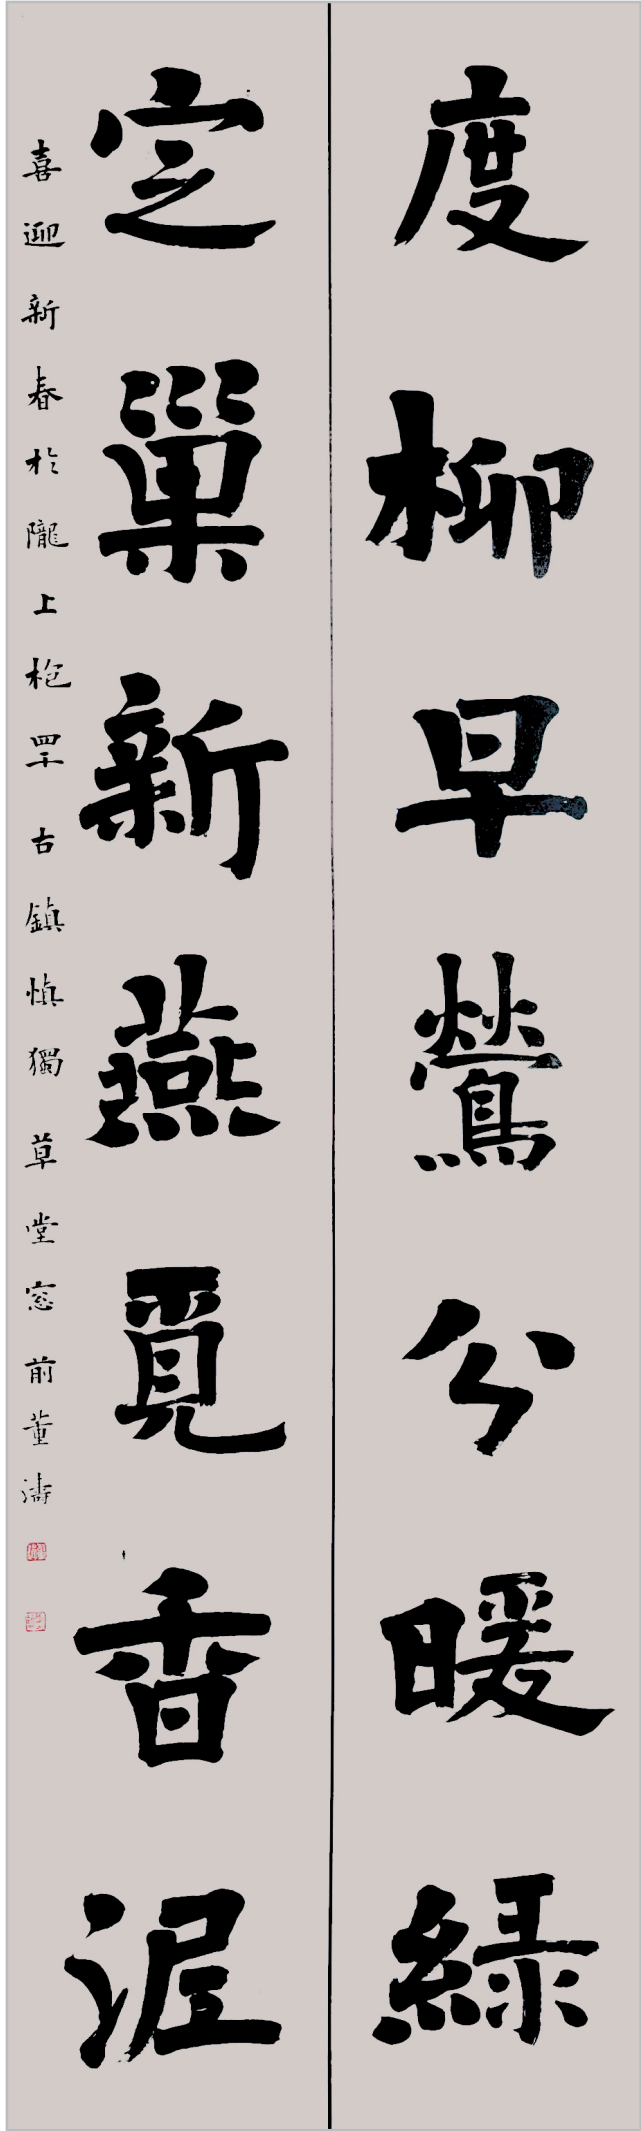 度柳早鶯分暖綠
定巢新燕覓香泥
喜迎新春於隴上枹罕古鎮慎獨草堂窓前董濤